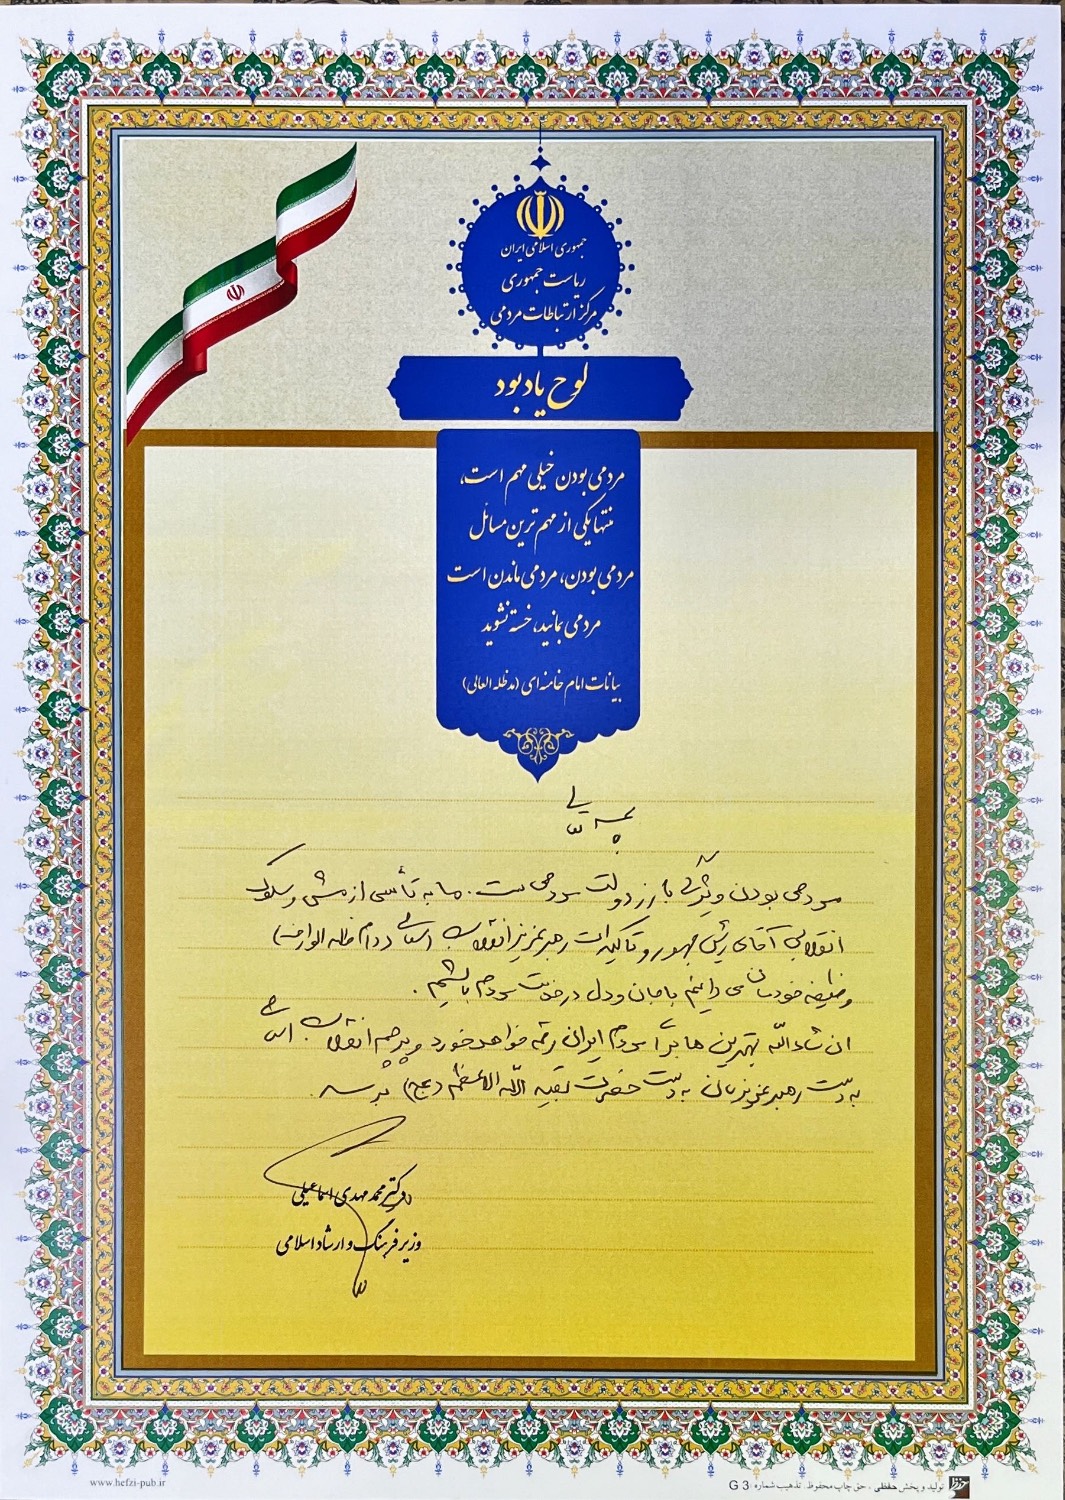 جمهوری اسلامی ایران
ریاست جمهوری
مرکز ارتباطات مردمی
لوح یادبود
مردمی بودن خیلی مهم است،
منتها یکی از مهم ترین مسائل
مردمی بودن، مردمی ماندن است
مردمی بمانید، خسته نشوید
بیانات امام خامنه ای (مدظله العالی)
بسمه تعالی
مردمی بودن ویژگی بارز دولت مردمی ست. ما به تأسی از مشی و سلوک
انقلابی آقای رئیس جمهور و تاکیدات رهبر عزیز انقلاب اسلامی (دام ظله الوارف)
وظیفه خودمان می دانیم با جان و دل در خدمت مردم باشیم.
ان شاءالله بهترین ها برای مردم ایران رقم خواهد خورد و پرچم انقلاب اسلامی
به دست رهبر عزیزمان به دست حضرت بقیه الله الاعظم (عج) برسد.
دکتر محمد مهدی اسماعیلی
وزیر فرهنگ و ارشاد اسلامی
www.hefzi-pub.ir
تولید و پخش حفظی . حق چاپ محفوظ. تذهیب شماره G 3
حفظی